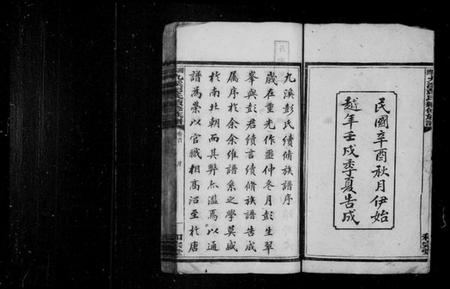 民國辛酉秋月伊始
越年壬戌季夏告成
九溪彭氏續脩族譜序
歲在重光作噩仲冬月彭生翠
峯與彭君續言續脩族譜告成
屬序於余余維譜系之學莫盛
於南北朝而其弊亦濫爲以通
譜爲榮以官職相高沿至於唐